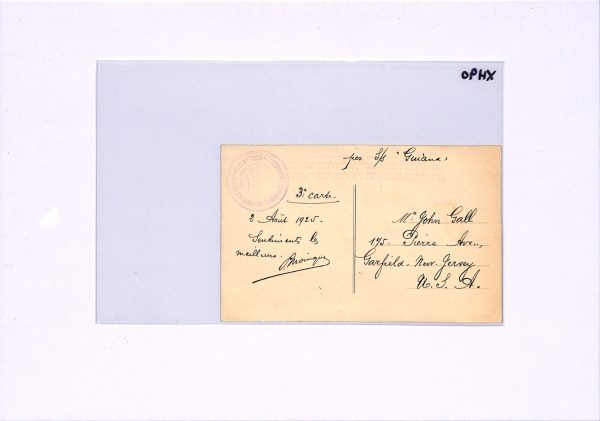 OPHX
per S/S "Guiana"
3e carte.
2 Août 1925.
Sentiments les
meilleurs.
Mr John Gall
195. Pierre Ave.,
Garfield. New-Jersey
U. S. A.